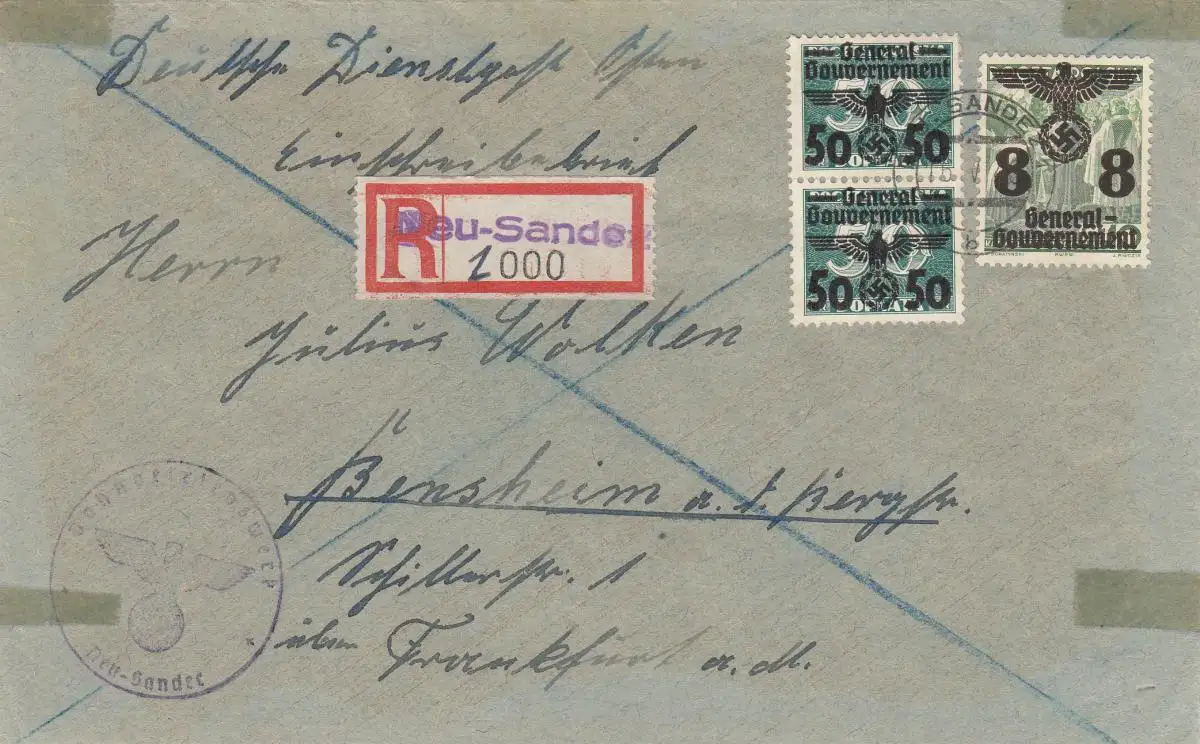 Deutsche Dienstpost Osten
Einschreibebrief
General
Gouvernement
50 50
General
Gouvernement
50 50
8 8
General-
Gouvernement
SANDE
b
R Neu-Sandez
1 000
Herrn
Julius Wolken
Bensheim a. d. Bergstr.
Schillerstr. 1
über Frankfurt a. M.
Neu-Sandez